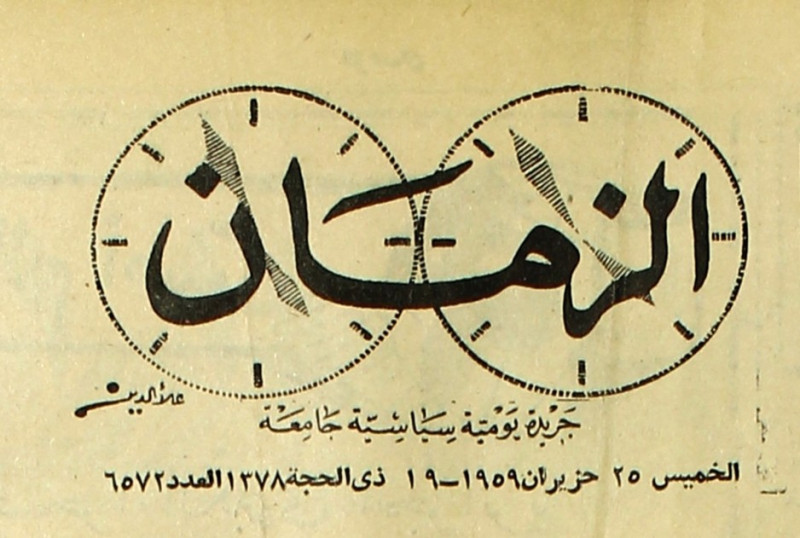 الزمان
علاءالدين
جَرِيْدَة يَوْمِيَّة سِيَاسِيَّة جَامِعَة
الخميس ٢٥ حزيران ١٩٥٩ــ١٩ ذى الحجة ١٣٧٨ العدد ٦٥٧٢